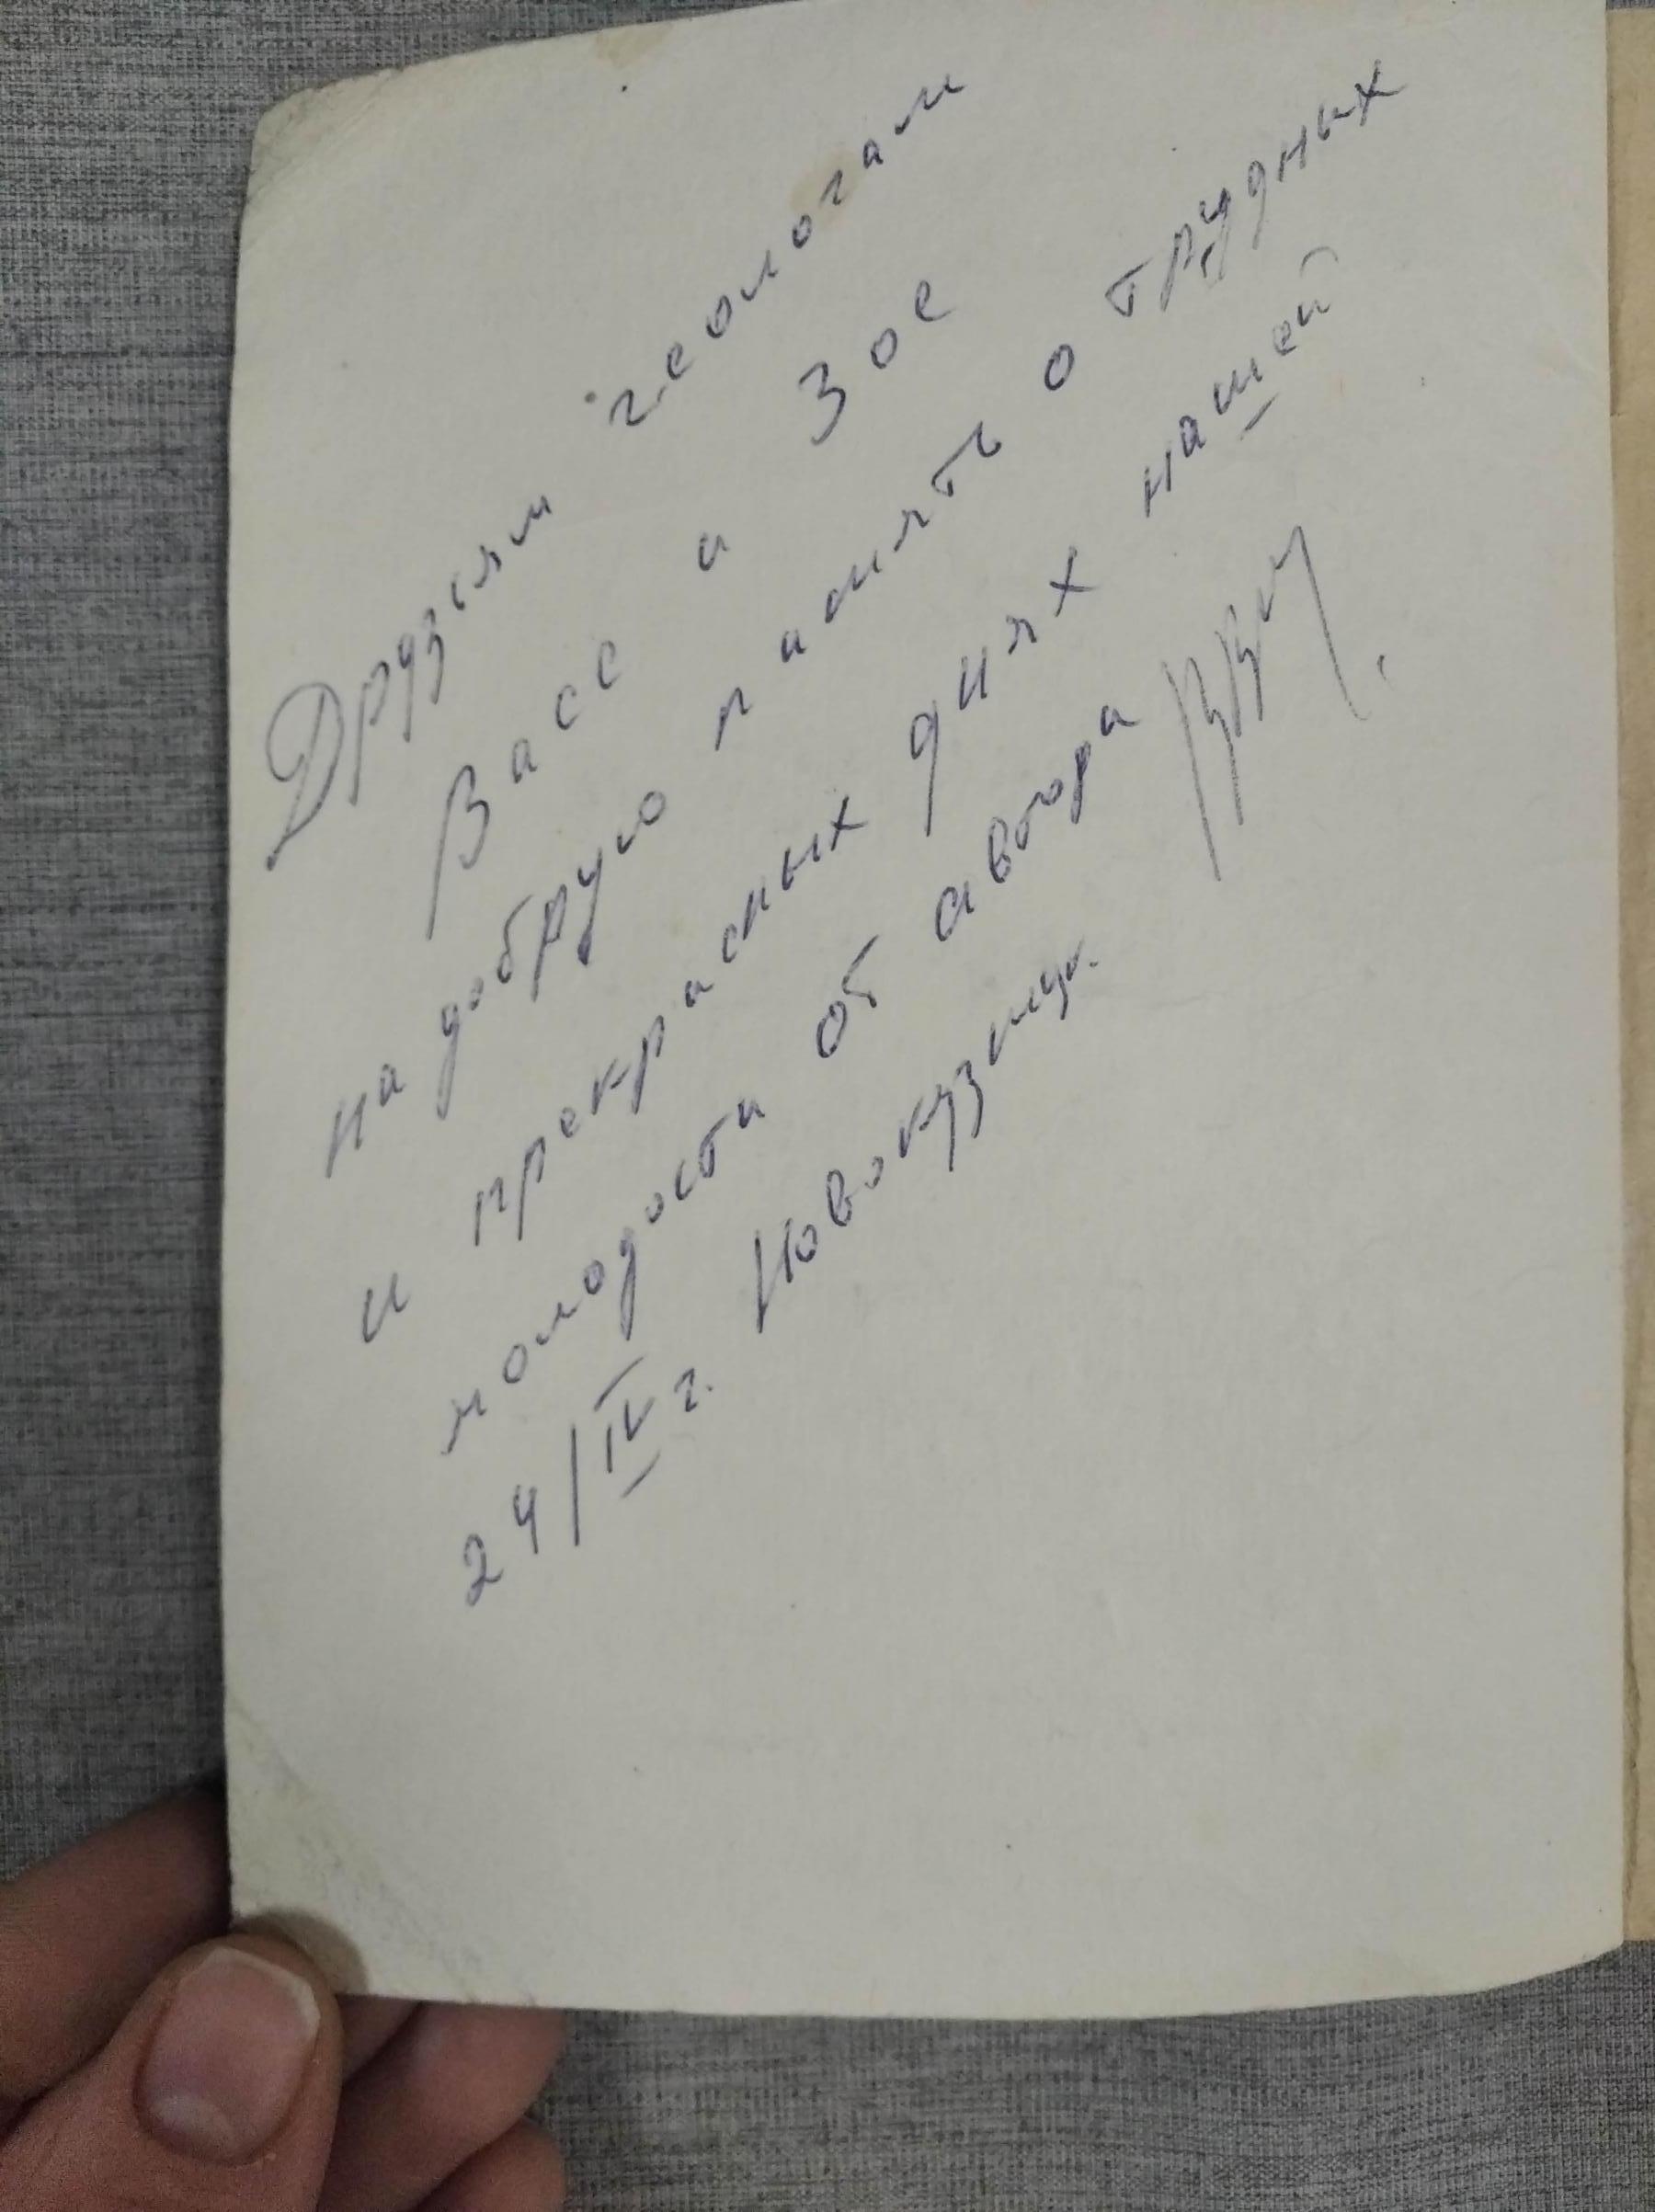 Друзьям геологам
Васе и Зое
на добрую память о трудных
и прекрасных днях нашей
молодости от автора
24/IV г. Новокузнецк.